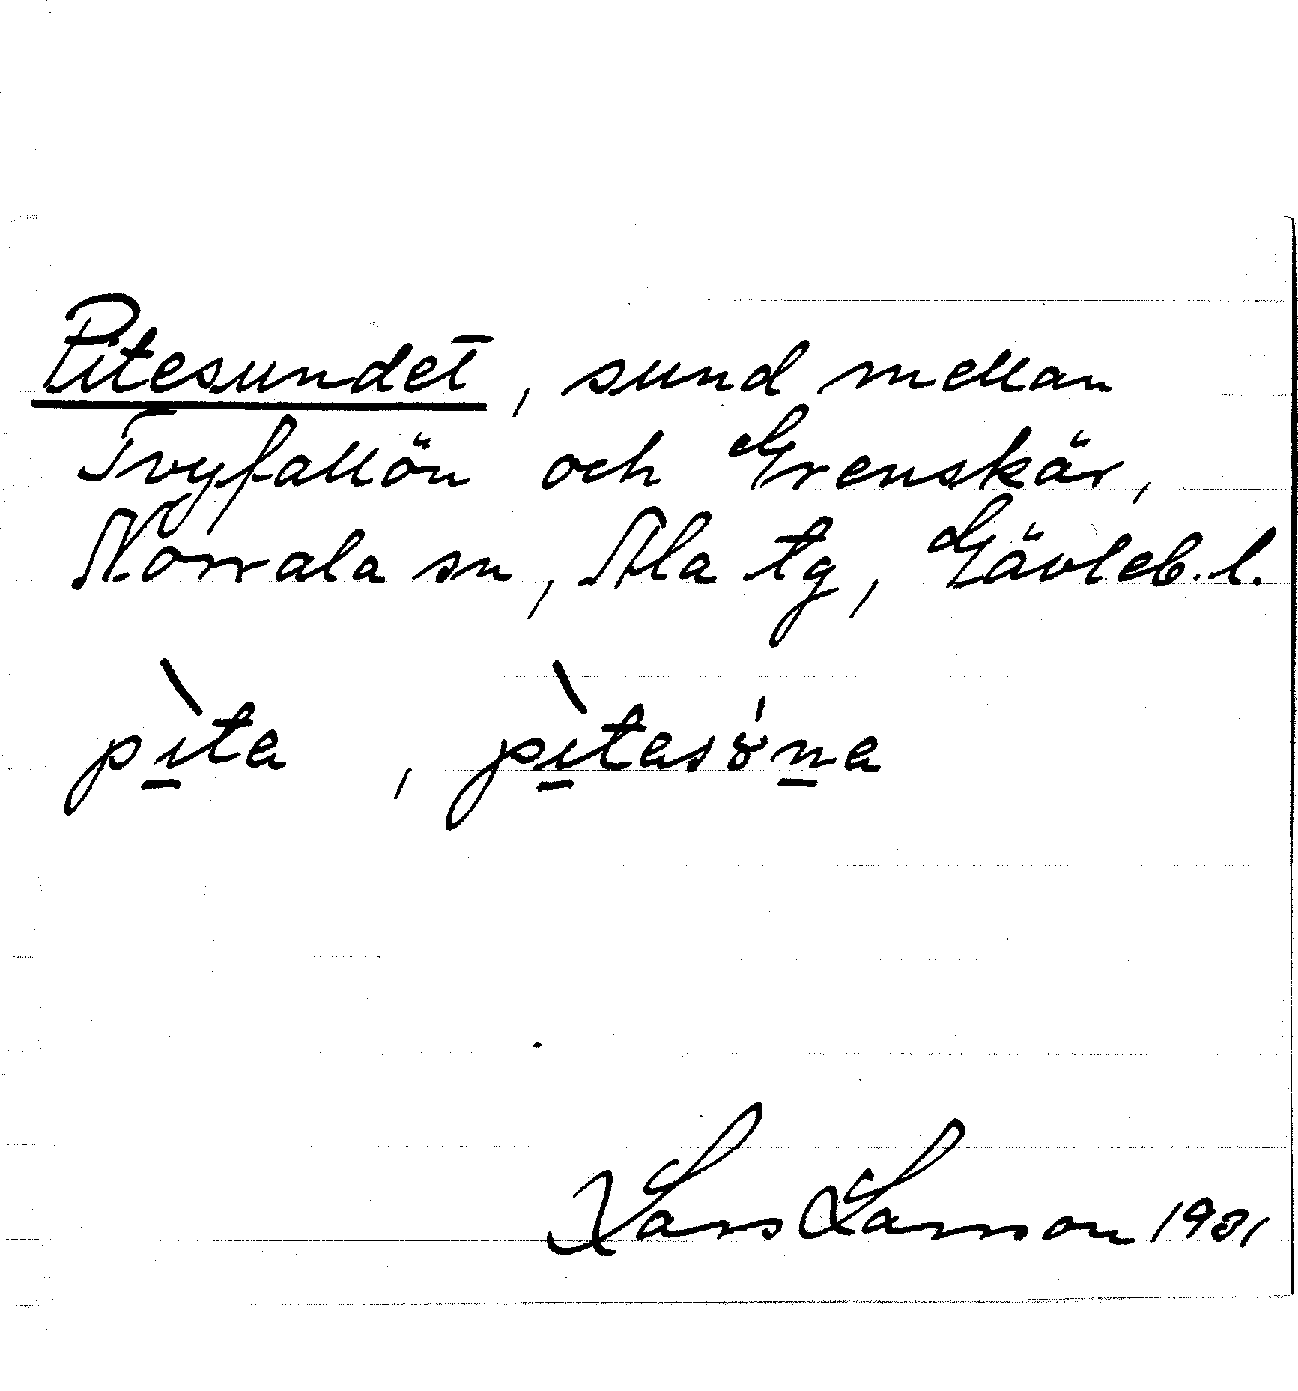 Pitesundet, sund mellan
Tvyfallön och Grenskär,
Norrala sn, Ala tg, Gävleb. l.
pìta, pìtasó̈na
Lars Larsson 1931